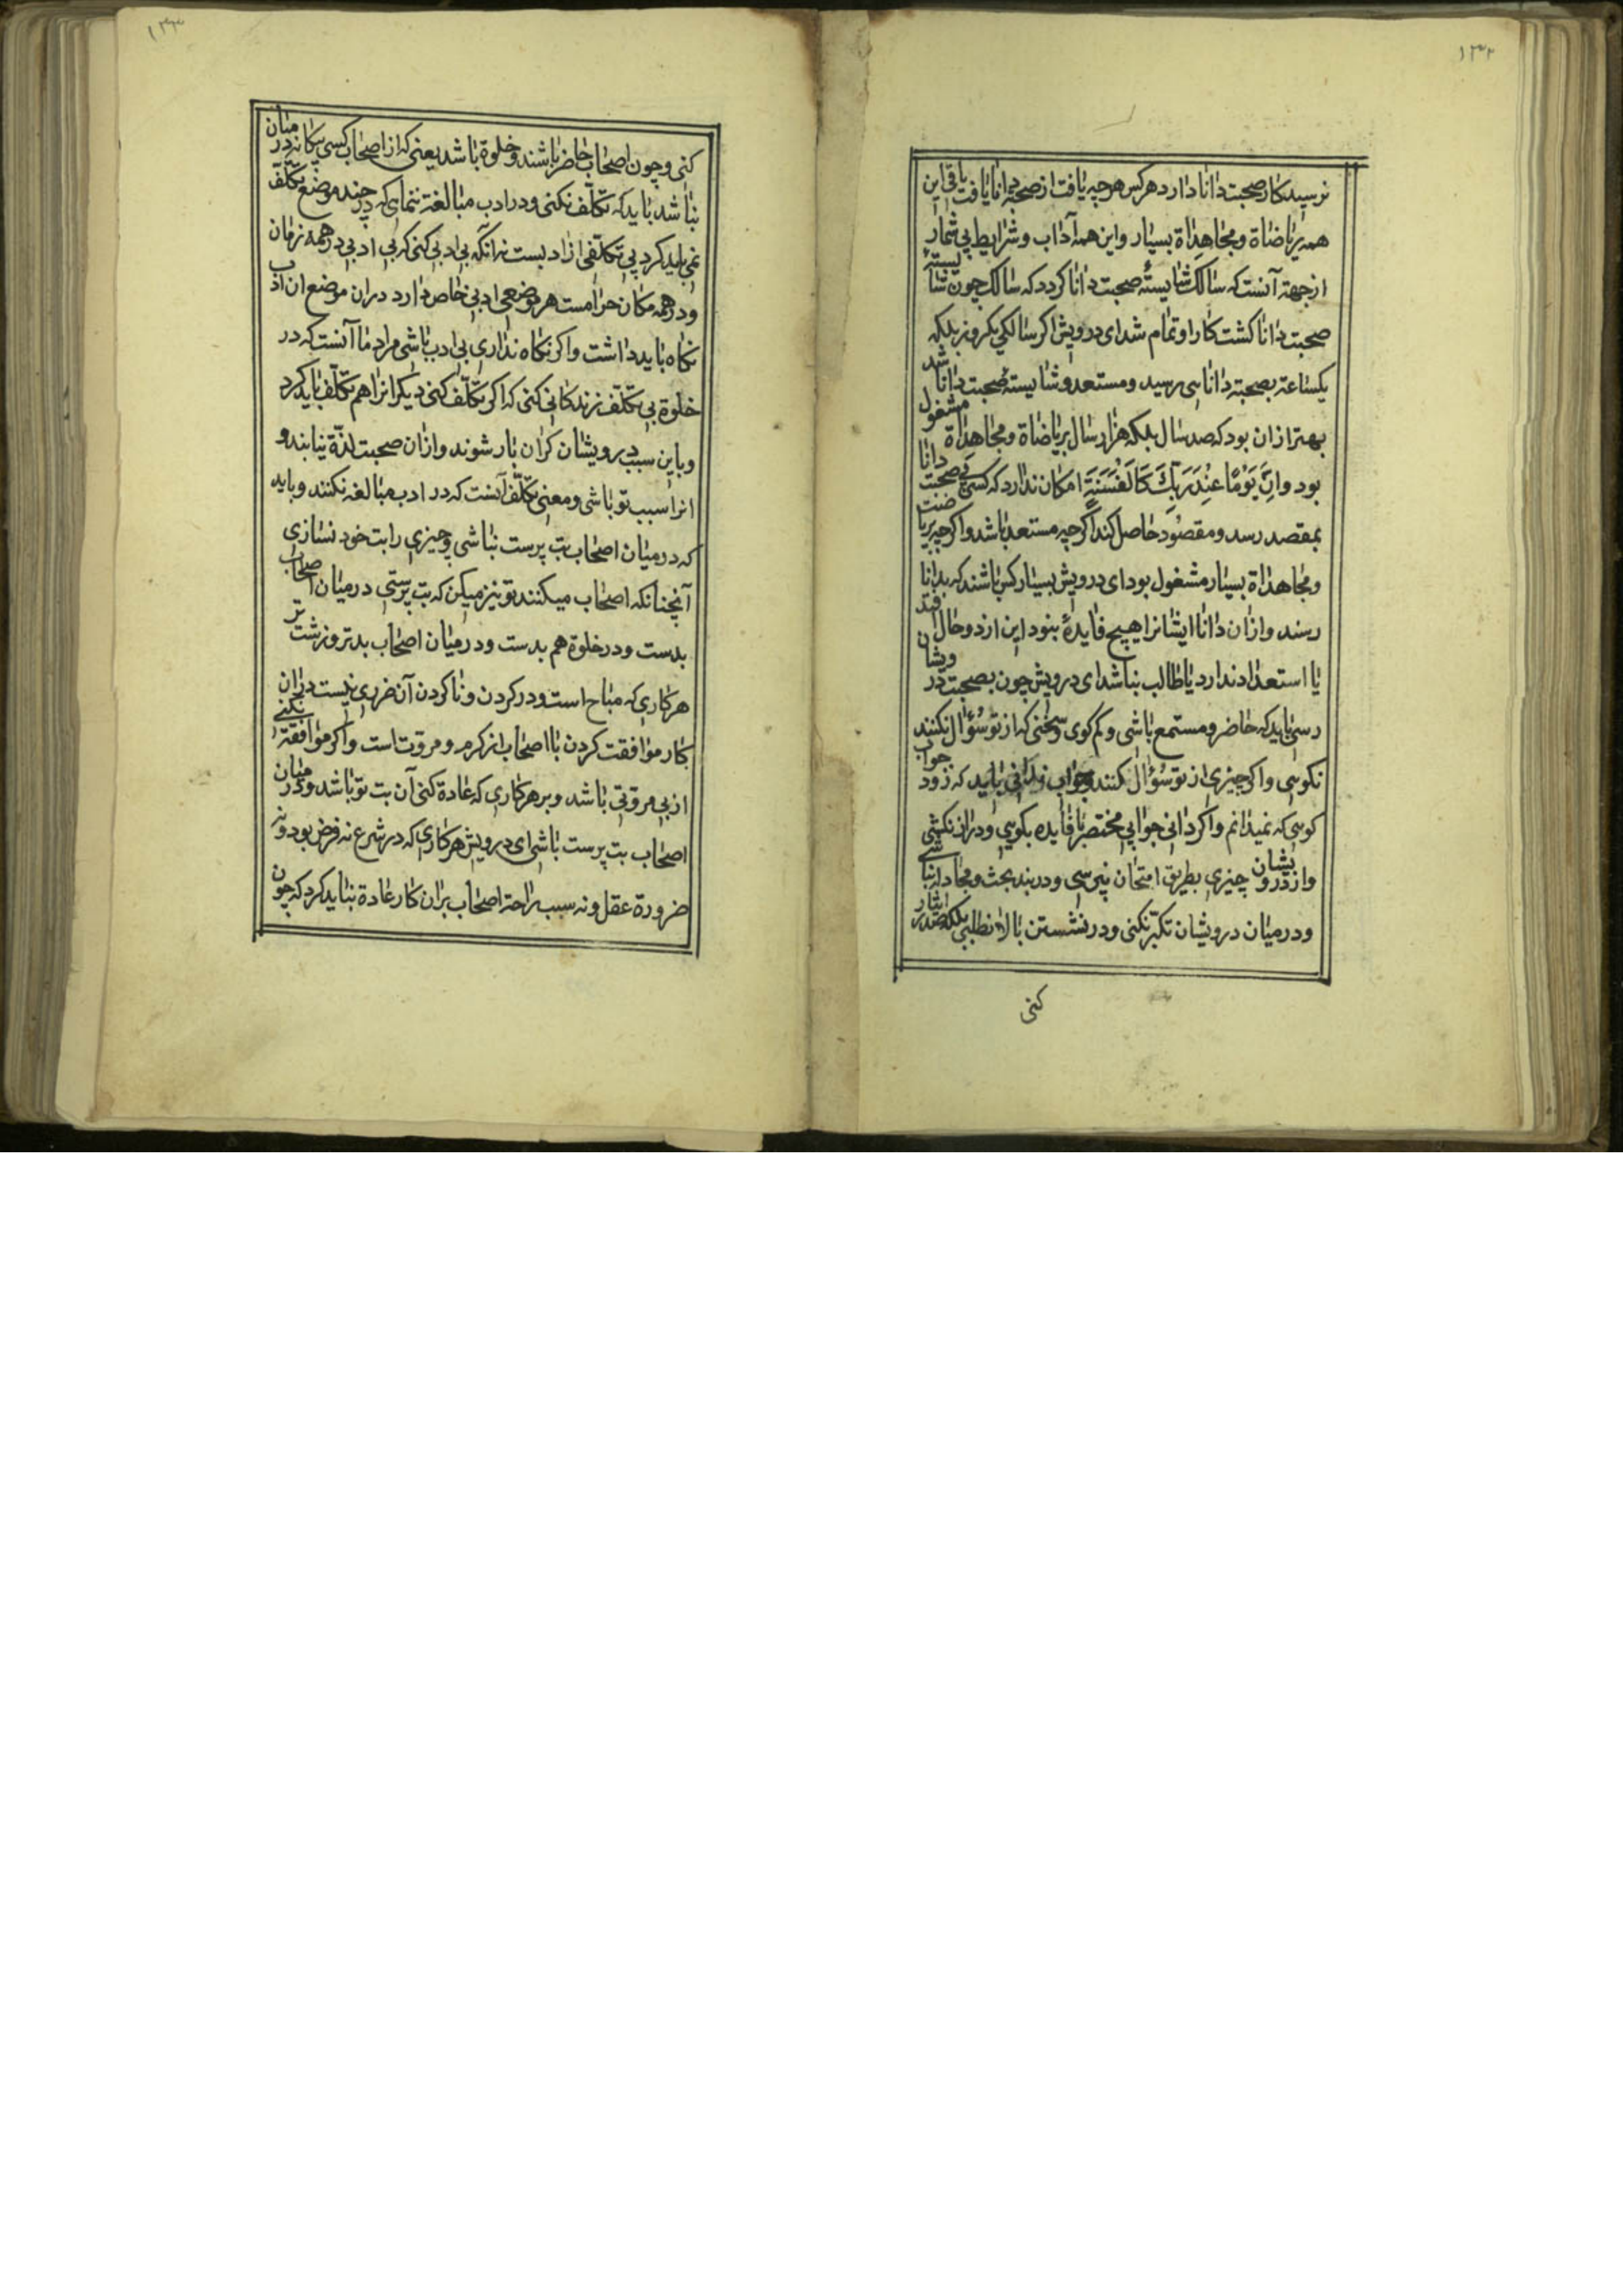 ۱۳۲
نرسید کار صحبت دانا دارد هر کس هر چه یافت از صحبة دانا یافت باقی این
همه ریاضاة ومجاهداة بسیار واین همه آداب وشرایط بی شمار
ازجهة آنست که سالک شایستهٔ صحبت دانا کردد که سالک چون شایستهٔ
صحبت دانا کشت کار او تمام شد ای درویش اکر سالکی یکروز بلکه
یکساعة بصحبة دانا سی رسید ومستعد وشایستهٔ صحبت دانا شد
بهتر ازان بود که صد سال بلکه هزار سال بریاضاة ومجاهداة مشغول
بود وَاِنَّ یَوْمًا عِنْدَ رَبِّكَ کَاَلْفِ سَنَةٍ امکان ندارد که کسی بی صحبت دانا
بمقصد رسد ومقصود حاصل کند اکرچه مستعد باشد واکرچه بریاضت
ومجاهداة بسیار مشغول بود ای درویش بسیار کس باشند که بدانا
رسند وازان دانا ایشانرا هیچ فایدهٔ نبود این از دو حال
یا استعداد ندارد یا طالب نباشد ای درویش چون بصحبت درویشان
رسی باید که حاضر ومستمع باشی وکم کوی وسخنی که از تو سُؤال نکنند
نکوسی واکر چیزی از تو سُؤال کنند وجواب ندانی باید که زود جواب
کوسی که نمیدانم واکر دانی جوابی مختصر با فایده بکوسی ودراز نکشی
واز درویشان چیزی بطریق امتحان نپرسی ودربند بحث ومجادله نباشی
ودرمیان درویشان تکبّر نکنی ودرنشستن بالا نطلبی بلکه صدر ایثار
کنی
۱۳۳
کنی وچون اصحاب حاضر باشند وخلوة باشد یعنی که از اصحاب کسی بیکانه در میان
نباشد باید که تکلّف نکنی ودرادب مبالغة ننمای که در چند موضع تکلّف
نمی باید کرد بی تکلّفی ازادیست نه آنکه بی ادبی کنی که بی ادبی در همه زمان
ودر همه مکان حرامست هر موضعی ادبی خاص دارد دران موضع ان ادب
نکاه باید داشت واکر نکاه نداری بی ادب باشی مراد ما آنست که در
خلوة بی تکلّف زندکانی کنی که اکر تکلّف کنی دیکرانرا هم تکلّف باید کرد
وباین سبب درویشان کران بار شوند وازان صحبت لذّة نیابند و
انرا سبب تو باشی ومعنی تکلّف آنست که در ادب مبالغه نکنند وباید
که درمیان اصحاب بت پرست نباشی وچیزی را بت خود نسازی
آنچنانکه اصحاب میکنند تو نیز میکن که بت پرستی درمیان اصحاب
بدست ودرخلوة هم بدست ودرمیان اصحاب بدتر وزشت تر
هر کاری که مباح است ودر کردن وناکردن آن ضرری نیست دران
کار موافقت کردن با اصحاب از کرم ومروّت است واکر موافقة نکنی
از بی مروّتی باشد وبر هر کاری که عادة کنی آن بت تو باشد ودرمیان
اصحاب بت پرست باشی ای درویش هر کاری که در شرع نه فرض بود ونه
ضرورة عقل ونه سبب راحة اصحاب بران کار عادة نباید کرد که چون